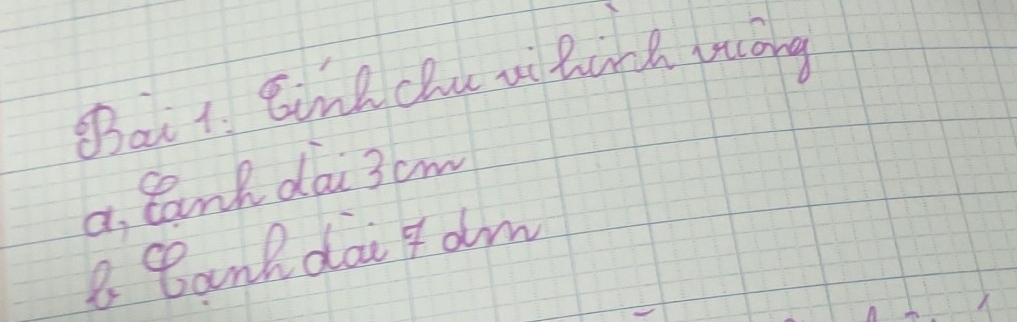 Bài 1: Tính chu vi hình vuông
a, Cạnh dài 3 cm
b, Cạnh dài 7 dm